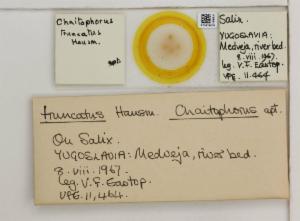 Chaitophorus
truncatus
Hausm.
apt.
Salix.
YUGOSLAVIA:
Medveja, river bed.
8.viii.1967.
leg. V.F. Eastop.
VFE.11,464
truncatus Hausm. Chaitophorus apt.
On Salix.
YUGOSLAVIA: Medveja, river bed.
8.viii.1967.
leg. V.F. Eastop.
VFE.11,464.